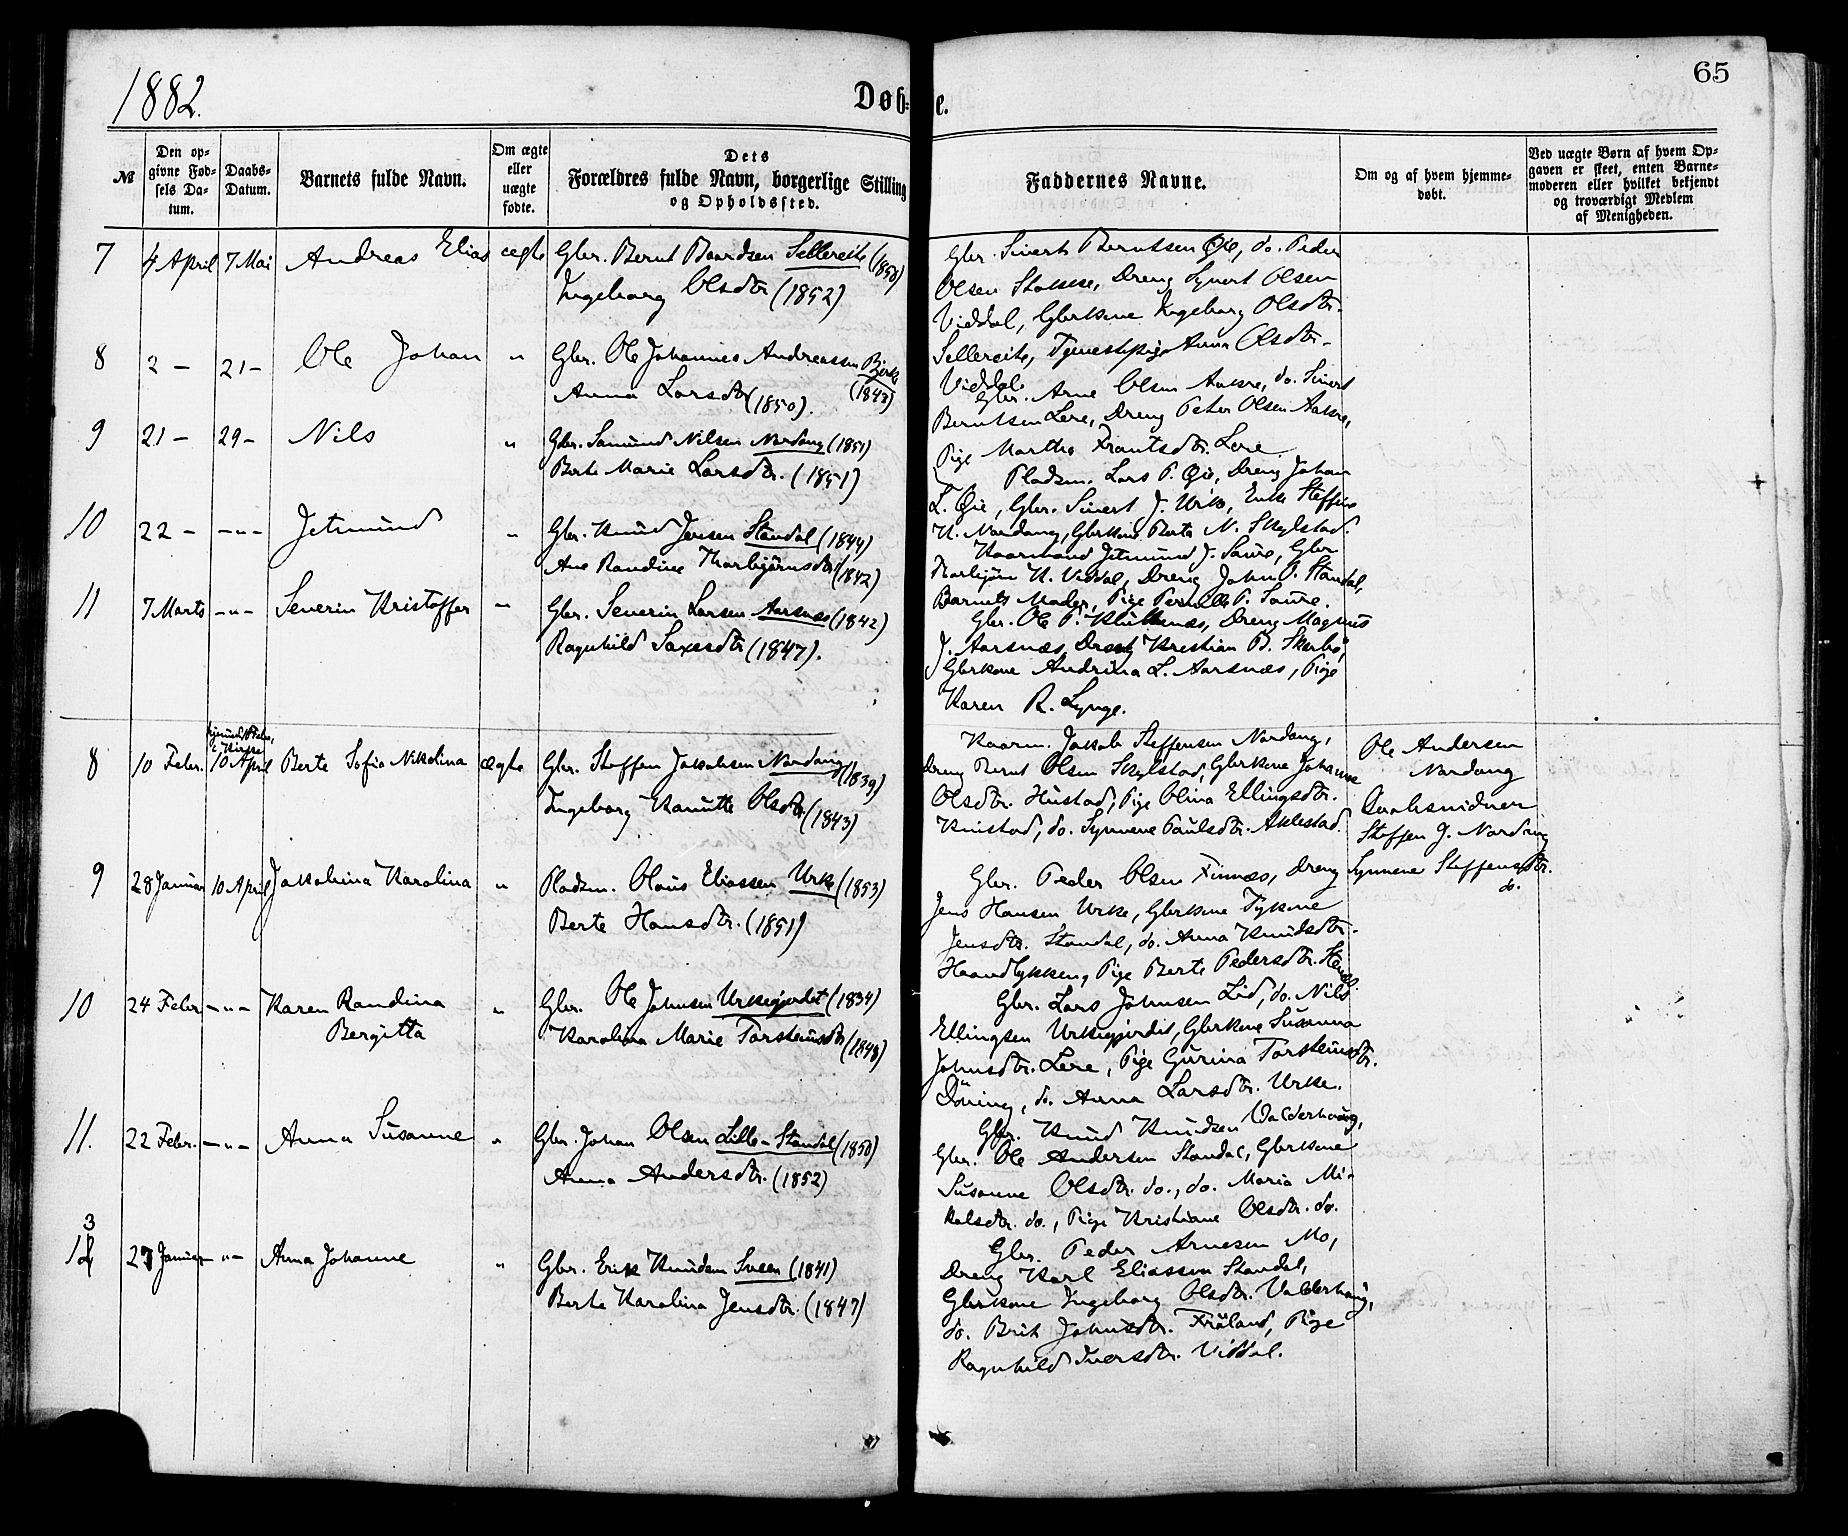 1882.
Døb-
e.
65
№
Den op-
givne Fød-
sels Da-
tum.
Daabs-
Datum.
Barnets fulde Navn.
Om ægte
eller
uægte
fødte.
Dets
Forældres fulde Navn, borgerlige Stilling
og Opholdssted.
Faddernes Navne.
Om og af hvem hjemme-
døbt.
Ved uægte Børn af hvem Op-
gaven er skeet, enten Barne-
moderen eller hvilket bekjendt
og troværdigt Medlem
af Menigheden.
7 4 April 7 Mai Andreas Elias ægte Gbr. Bernt Baardsen Sellereite (1850)
Ingeborg Olsdtr (1852)
Gbr. Sivert Berntsen Øie, do. Peder
Olsen Stokke, Dreng Syvert Olsen
Viddal, Gbrkone Ingeborg Olsdtr.
Sellereite, Tjenestepige Anna Olsdtr.
Viddal.
8 2 - 21 - Ole Johan " Gbr. Ole Johannes Andreassen Bjerke
(1843)
Anna Larsdtr (1850).
Gbr. Arne Olsen Aakre, do. Sivert
Berntsen Lere, Dreng Peter Olsen Aakre,
Pige Martha Frantsdtr. Lere
9 21 - 29 - Nils " Gbr. Samund Nilsen Nordang (1851)
Berte Marie Larsdtr. (1851)
Pladsm. Lars P. Øie, Dreng Johan
L. Øie, Gbr. Sivert J. Urke, Enke Steffine
N. Nordang, Gbrkone Berte N. Skylstad.
10 22 - -"- Jetmund " Gbr. Knud Jensen Standal (1844)
Ane Randine Thorbjørnsdtr (1842)
Kaarmand Jetmund J. Saure, Gbr.
Thorbjørn K. Viddal, Dreng John P. Standal,
Barnets Moder, Pige Pernille P. Saure.
11 7 Marts -"- Severin Kristoffer " Gbr. Severin Larsen Aarsnæs (1842)
Ragnhild Saxesdtr (1847).
Gbr. Ole P. Magnus
J. Aarsnæs, Dreng Kristian B. Skarbø,
Gbrkone Andrina L. Aarsnæs, Pige
Karen R. Lynge.
8 10 Febr. 10 April Berte Sofia Nikolina ægte Gbr. Steffen Jakobsen Nordang (1839)
Ingeborg Kanutte Olsdtr (1843)
Kaarm. Jakob Steffensen Nordang,
Dreng Bernt Olsen Skylstad, Gbrkone Johanne
Olsdtr. Hustad, Pige Olina Ellingsdtr.
Knistad, do. Synneve Paulsdtr. Aklestad.
Ole Andersen
Nordang
Daabsvidner
Steffen J. Nordang
Synneve Steffensdtr.
do.
9 28 Januar 10 April Jakobina Karolina " Pladsm. Olaus Eliassen Urke (1853)
Berte Hansdtr. (1851)
Gbr. Peder Olsen Finnæs, Dreng
Jens Hansen Urke, Gbrkone Tykene
Jensdtr. Standal, do. Anna Knudsdtr.
Haandlykken, Pige Berte Pedersdtr.
10 24 Febr. -"- Karen Randina
Bergitta
" Gbr. Ole Johnsen Urkegjerdet (1834)
Karolina Marie Torsteinsdtr (1848)
Gbr. Lars Johnsen Lid, do. Nils
Ellingsen Urkegjerdet, Gbrkone Susanna
Johnsdtr. Lere, Pige Gurina Torsteinsdtr.
Döving, do. Anna Larsdtr. Urke.
11. 22 Febr. -"- Anna Susanne " Gbr. Johan Olsen Lille-Standal (1850)
Anna Andersdtr. (1852)
Gbr. Knud Knudsen Valderhaug,
Gbr. Ole Andersen Standal, Gbrkone
Susanne Olsdtr. do., do. Maria Mi-
kalsdtr. do., Pige Kristiane Olsdtr. do.
3
12 27 Januar -"- Anna Johanne " Gbr. Erik Knudsen Sveen (1841)
Berte Karolina Jensdtr. (1847)
Gbr. Peder Arnesen Mo,
Dreng Karl Eliassen Standal,
Gbrkone Ingeborg Olsdtr. Valderhaug,
do. Brit Johnsdtr. Fröland, Pige
Ragnhild Iversdtr. Viddal.